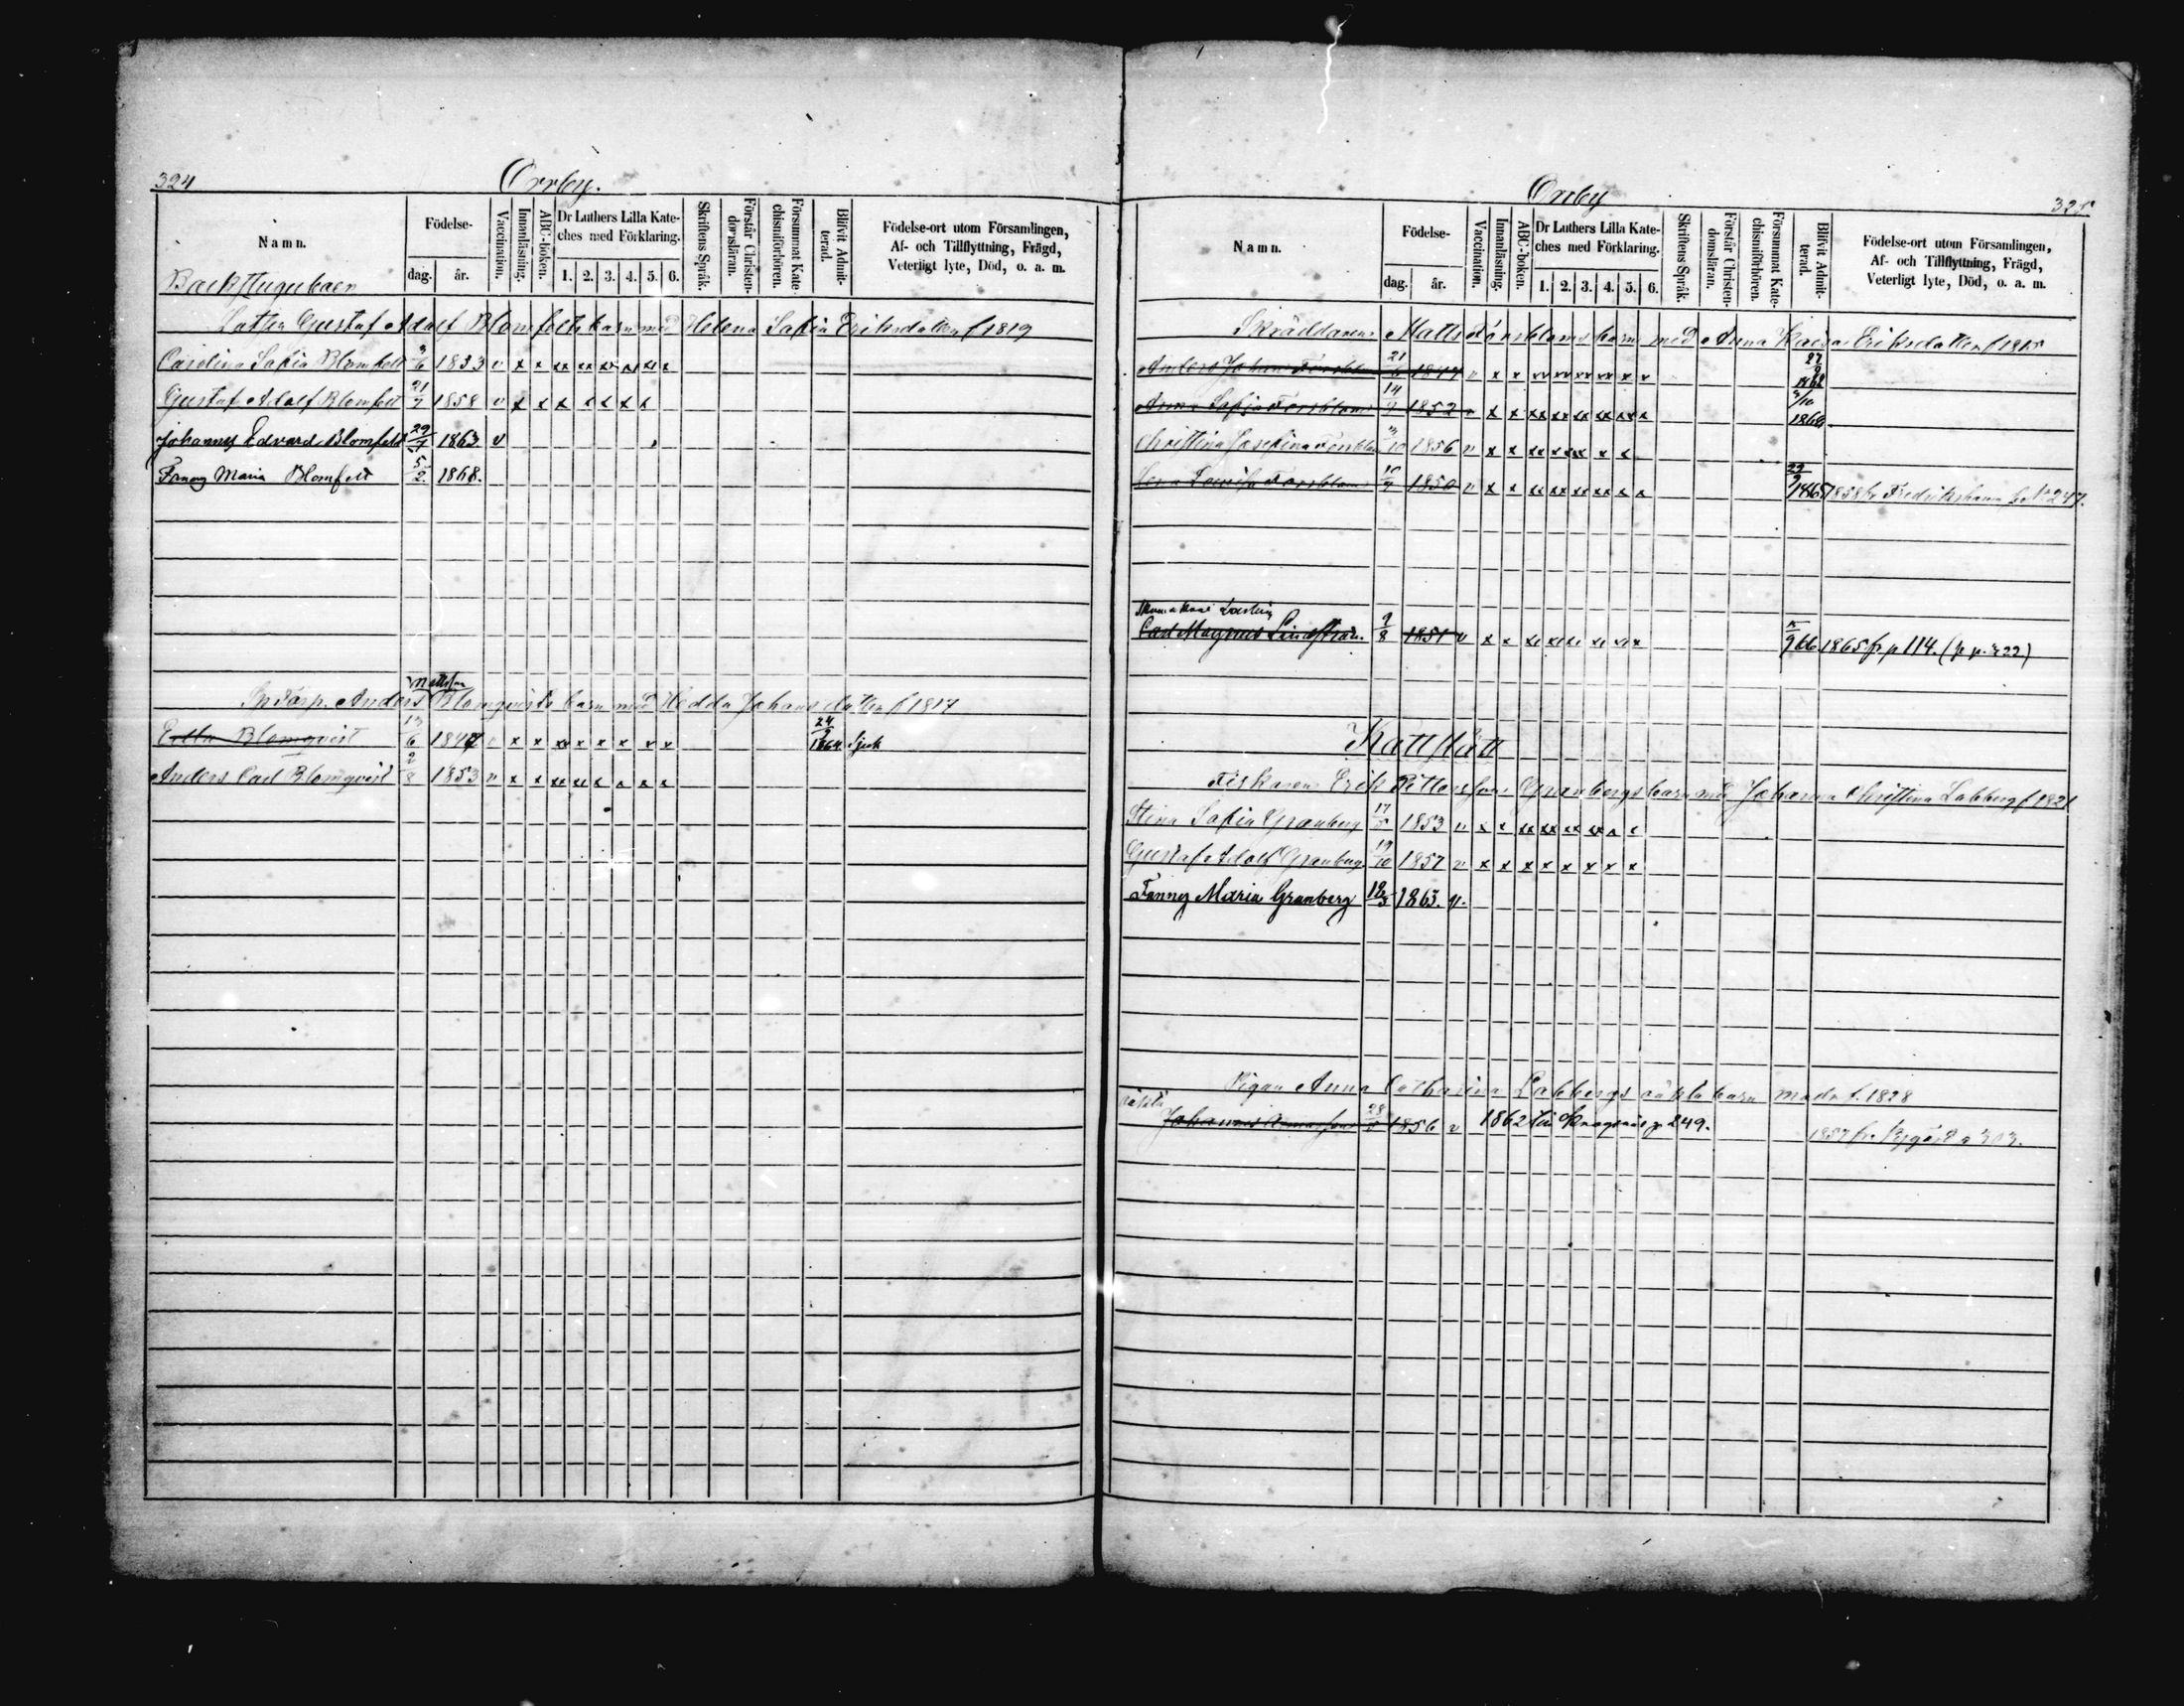 324
Orrby.
Namn.
Födelse-
dag.
år.
Vaccination.
Innanläsning.
ABC-boken.
Dr Luthers Lilla Kate-
ches med Förklaring.
1. 2. 3. 4. 5. 6.
Skriftens Språk.
Förstår Christen-
domsläran.
Försummat Kate-
chismiförhören.
Blifvit Admit-
terad.
Födelse-ort utom Församlingen,
Af- och Tillflyttning, Frägd,
Veterligt lyte, Död, o. a. m.
Backstugubarn
Gustaf Adolf Blomfelts barn med Helena Sofia Eriksdotter f 1819
Carolina Sofia Blomfelt 1853 v x x xx xx xx x xx x
Gustaf Adolf Blomfelt 21/7 1858 v x x x x x x x
Johannes Edvard Blomfelt 29/1 1863 v
Fanny Maria Blomfelt 5/2 1868.
Mattsson
Anders Blomqvists barn med Hedda Johansdotter f 1817
Blomqvist 13/6 1847 v x x xx x x x x x 24/9 1864 Sjuk
Anders Carl Blomqvist 2/8 1853 v x x xx xx x x x x
Orrby
325
Namn.
Födelse-
dag.
år.
Vaccination.
Innanläsning.
ABC-boken.
Dr Luthers Lilla Kate-
ches med Förklaring.
1. 2. 3. 4. 5. 6.
Skriftens Språk.
Förstår Christen-
domsläran.
Försummat Kate-
chismiförhören.
Blifvit Admit-
terad.
Födelse-ort utom Församlingen,
Af- och Tillflyttning, Frägd,
Veterligt lyte, Död, o. a. m.
Skräddaren Matts Forsbloms barn med Anna Kajsa Eriksdotter f 1815
Anders Johan Forsblom 21/6 1847 v x x xx xx xx x x
Anna Sofia Forsblom 14/9 1852 v x x xx xx xx xx x x
Christina Josefina Forsblom 3/10 1856 v x x xx x xx x x
Lovisa Forsblom 1850 v x x xx xx xx xx x x 1865 1858 fr Fredrikshamn b. No 247.
Carl Magnus Lindström. 9/8 1851 v x x xx xx xx xx x 1865 fr p 114. (p p. 322)
Kattflätt
Fiskaren Erik Pettersson Granbergs barn med Johanna Christina Labberg f 1821
Stina Sofia Granberg 17/5 1853 v x x xx xx xx xx x x
Gustaf Adolf Granberg 19/10 1857 v x x x x x x x x
Fanny Maria Granberg 18/3 1863. v.
Pigan Anna Catharina Labbergs oäkta barn modr f. 1828
oäkta
Johannes 28/5 1856 v 1862 till p 249. 1857 fr. p 303.